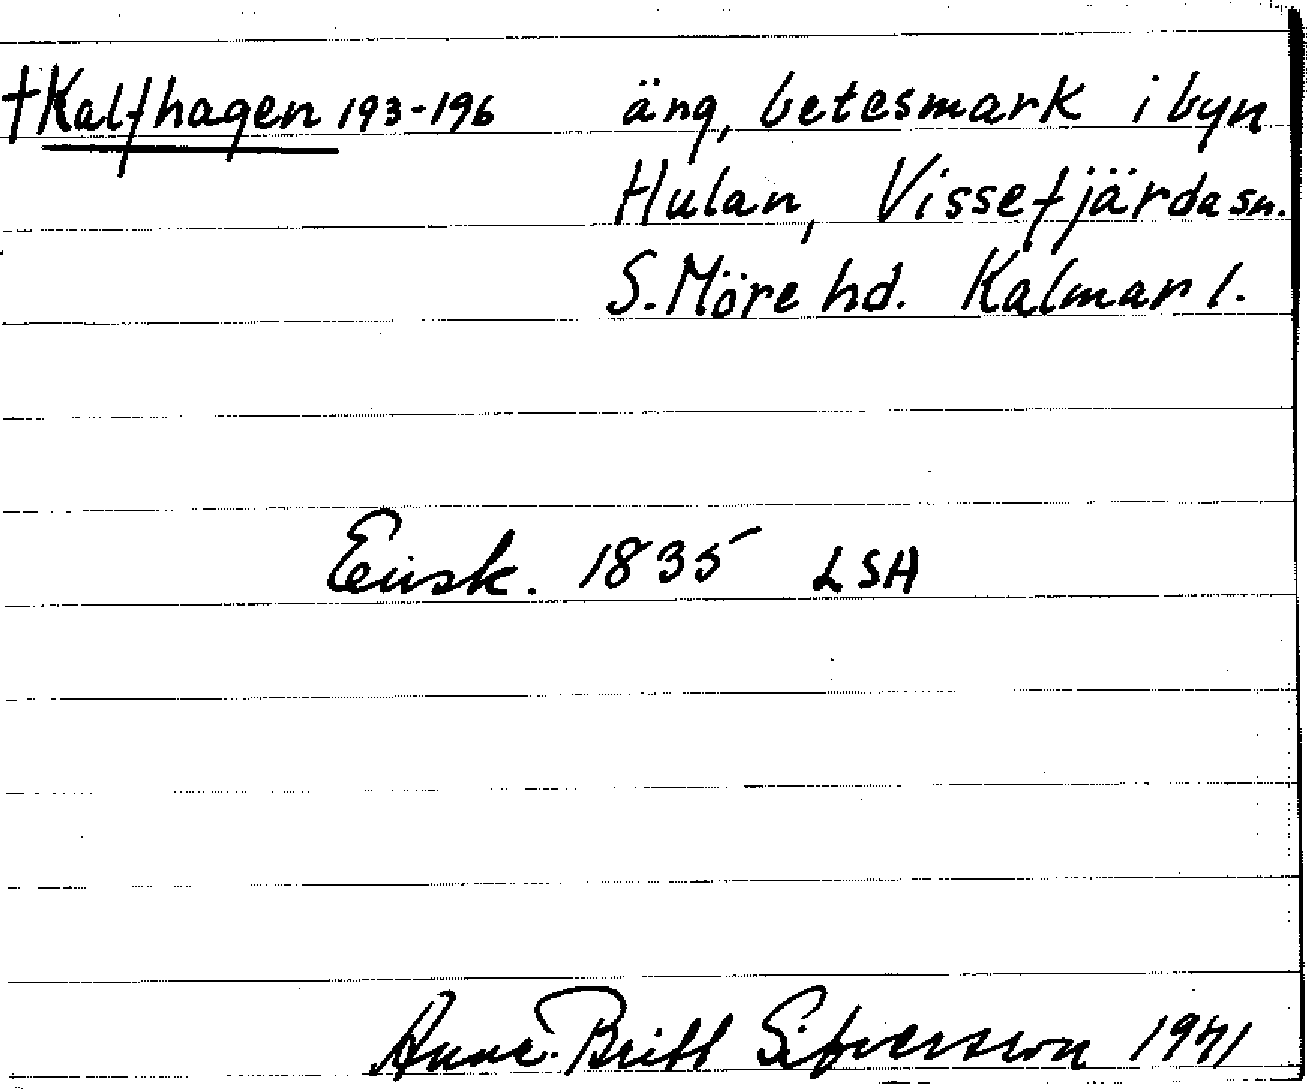 †Kalfhagen 193-196 äng, betesmark i byn
Hulan, Vissefjärda sn.
S. Möre hd. Kalmar l.
Ensk. 1835 LSA
Anne-Britt Sifversson 1971